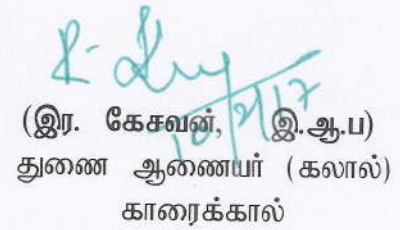 10/2/17
(இர. கேசவன், இ.ஆ.ப)
துணை ஆணையர் (கலால்)
காரைக்கால்